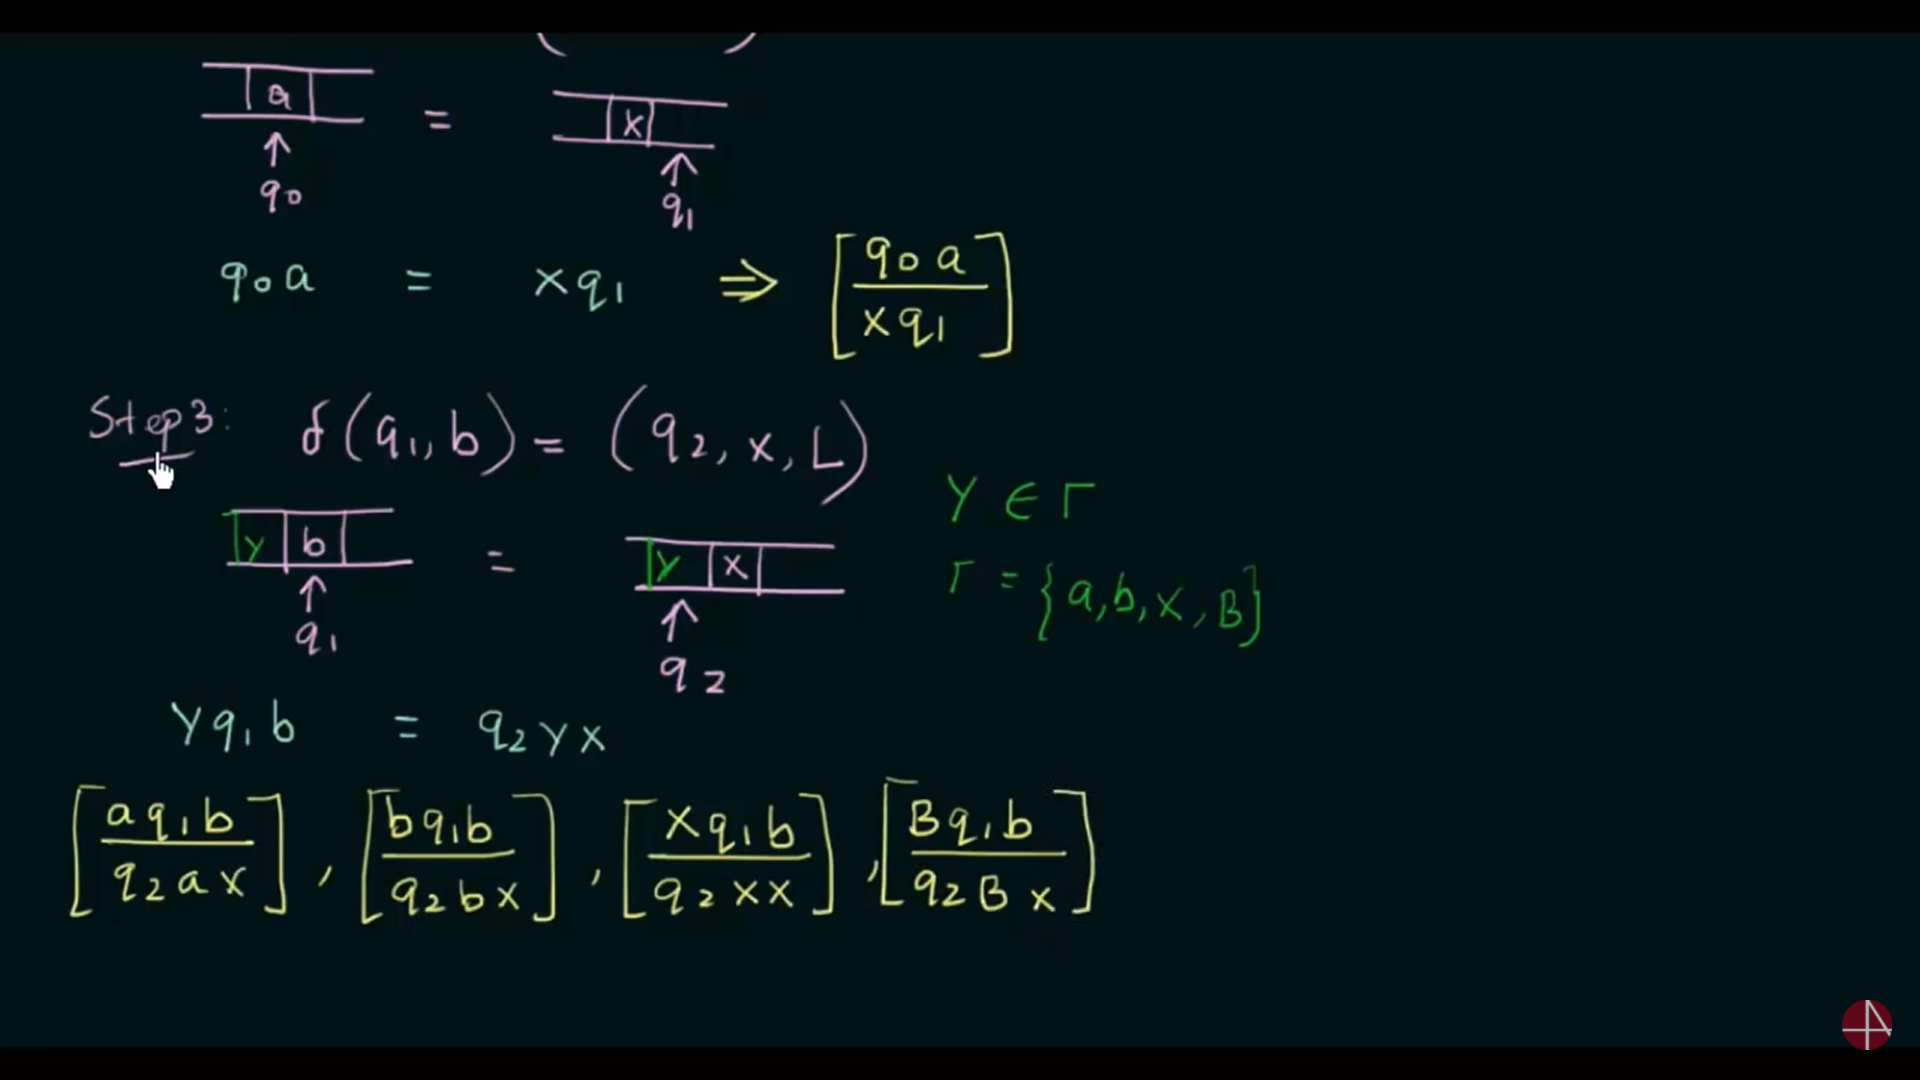 a = x
q0 q1
q0 a = x q1 ⇒ [q0 a / x q1]
Step 3: δ(q1, b) = (q2, x, L)
Y ∈ Γ
y b = y x
Γ = {a, b, x, B}
q1 q2
Y q1 b = q2 Y x
[a q1 b / q2 a x], [b q1 b / q2 b x], [x q1 b / q2 x x], [B q1 b / q2 B x]